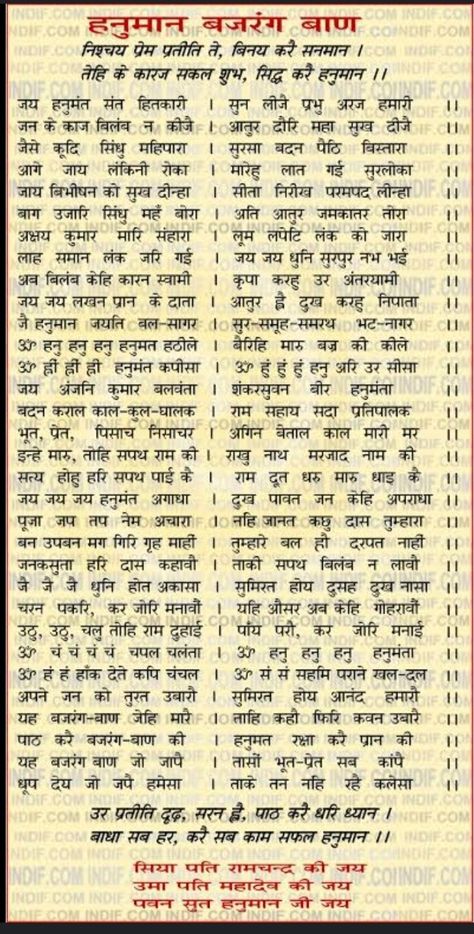 हनुमान बजरंग बाण
निश्चय प्रेम प्रतीति ते, बिनय करै सनमान ।
तेहि के कारज सकल शुभ, सिद्ध करै हनुमान ।।
जय हनुमंत संत हितकारी । सुन लीजै प्रभु अरज हमारी ।।
जन के काज बिलंब न कीजै । आतुर दौरि महा सुख दीजै ।।
जैसे कूदि सिंधु महिपारा । सुरसा बदन पैठि बिस्तारा ।।
आगे जाय लंकिनी रोका । मारेहु लात गई सुरलोका ।।
जाय बिभीषन को सुख दीन्हा । सीता निरखि परमपद लीन्हा ।।
बाग उजारि सिंधु महँ बोरा । अति आतुर जमकातर तोरा ।।
अक्षय कुमार मारि संहारा । लूम लपेटि लंक को जारा ।।
लाह समान लंक जरि गई । जय जय धुनि सुरपुर नभ भई ।।
अब बिलंब केहि कारन स्वामी । कृपा करहु उर अंतरयामी ।।
जय जय लखन प्रान के दाता । आतुर ह्वै दुख करहु निपाता ।।
जै हनुमान जयति बल-सागर । सुर-समूह-समरथ भट-नागर ।।
ॐ हनु हनु हनु हनुमत हठीले । बैरिहि मारु बज्र की कीले ।।
ॐ ह्रीं ह्रीं ह्रीं हनुमंत कपीसा । ॐ हुं हुं हुं हनु अरि उर सीसा ।।
जय अंजनि कुमार बलवंता । शंकरसुवन बीर हनुमंता ।।
बदन कराल काल-कुल-घालक । राम सहाय सदा प्रतिपालक ।।
भूत, प्रेत, पिसाच निसाचर । अगिन बेताल काल मारी मर ।।
इन्हे मारु, तोहि सपथ राम की । राखु नाथ मरजाद नाम की ।।
सत्य होहु हरि सपथ पाई कै । राम दूत धरु मारु धाइ कै ।।
जय जय जय हनुमंत अगाधा । दुख पावत जन केहि अपराधा ।।
पूजा जप तप नेम अचारा । नहि जानत कछु दास तुम्हारा ।।
बन उपबन मग गिरि गृह माहीं । तुम्हारे बल हौं दरपत नाहीं ।।
जनकसुता हरि दास कहावौ । ताकी सपथ बिलंब न लावौ ।।
जै जै जै धुनि होत अकासा । सुमिरत होय दुसह दुख नासा ।।
चरन पकरि, कर जोरि मनावौं । यहि औसर अब केहि गोहरावौं ।।
उठु, उठु, चलु तोहि राम दुहाई । पाँय परौं, कर जोरि मनाई ।।
ॐ चं चं चं चं चपल चलंता । ॐ हनु हनु हनु हनुमंता ।।
ॐ हं हं हाँक देते कपि चंचल । ॐ सं सं सहमि पराने खल-दल ।।
अपने जन को तुरत उबारौ । सुमिरत होय आनंद हमारौ ।।
यह बजरंग-बाण जेहि मारै । ताहि कहौ फिरि कवन उबारै ।।
पाठ करै बजरंग-बाण की । हनुमत रक्षा करै प्रान की ।।
यह बजरंग बाण जो जापै । तासों भूत-प्रेत सब कांपै ।।
धूप देय जो जपै हमेसा । ताके तन नहि रहे कलेसा ।।
उर प्रतीति दृढ़, सरन ह्वै, पाठ करै धरि ध्यान ।
बाधा सब हर, करै सब काम सफल हनुमान ।।
सिया पति रामचन्द्र की जय
उमा पति महादेव की जय
पवन सुत हनुमान जी जय